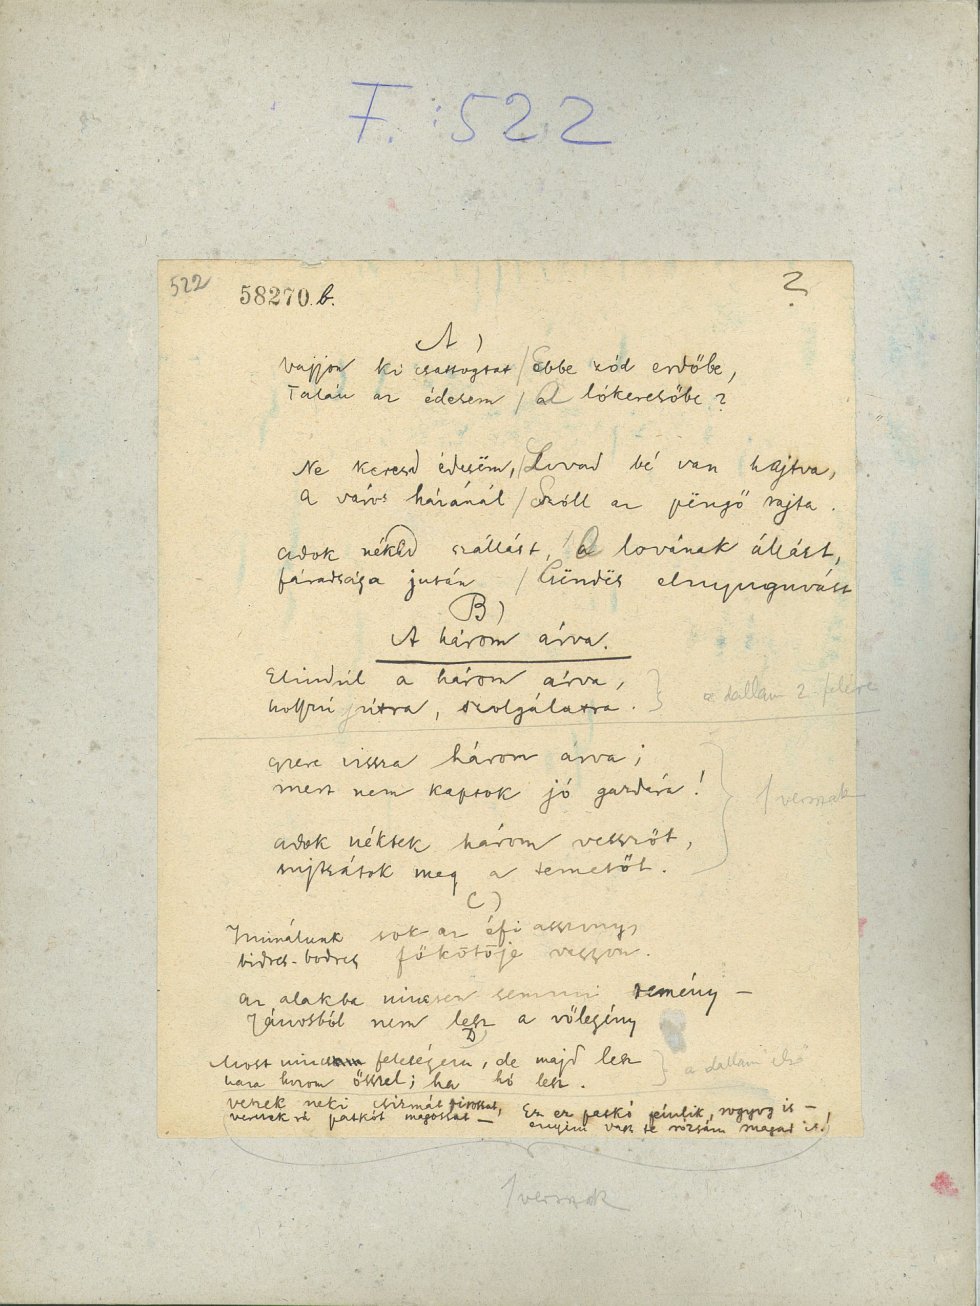 F. 522
522
58270.b.
?
A)
Vajjon ki csattogtat / Ebbe zód erdőbe,
Talán az édesem / A lókeresőbe?
Ne keresd édesëm, / Lovad bé van hajtva,
A város házánál / Szóll az pëngő rajta.
Adok néked szállást, / A lovának állást,
fáradsága után / Csëndës elnyuguvást
B)
A három árva.
Elindúl a három árva,
hosszú útra, szolgálatra.
a dallam 2. felére
gyere vissza három arva;
mert nem kaptok jó gazdára!
1 versszak
adok néktek három vesszőt,
sujtsátok meg a temetőt.
C)
Minálunk sok az éfi asszony,
bidres-bodres főkötője vaszon.
az alakba nincsen semmi remény –
Jánosból nem lesz a vőlegény
D)
Most nincsen feleségem, de majd lesz
haza hozom ősszel; ha hó lesz.
a dallam első
veszek neki csizmát pirossat,
veretek rá patkót magossat –
Ez ez patkó pëndik, rogyog is –
enyim vagy te rózsám magad is!
1 versszak